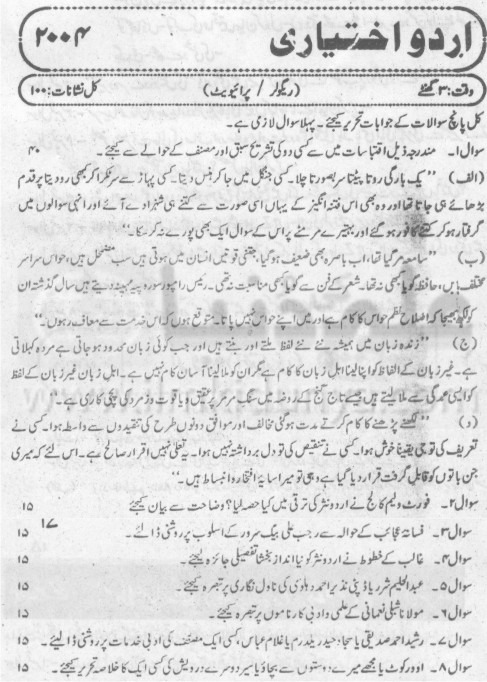 اردو اختیاری ۲۰۰۴
وقت: ۳ گھنٹے (ریگولر / پرائیویٹ) کل نشانات: ۱۰۰
کل پانچ سوالات کے جوابات تحریر کیجئے۔ پہلا سوال لازمی ہے۔
سوال ۱۔ مندرجہ ذیل اقتباسات میں سے کسی دو کی تشریح سبق اور مصنف کے حوالے سے کیجئے۔ ۴۰
(الف) ”یک بارگی روتا پیٹتا سر بصورتا چلا۔ کسی جنگل میں جا کر ہنس دیتا۔ کسی پہاڑ سے سر ٹکرا کر کبھی رو دیتا پر قدم
بڑھائے ہی جاتا تھا اور وہ بھی اس فتنہ انگیز کے یہاں اسی صورت سے کتنے ہی شہزادے آئے اور انہی سوالوں میں
گرفتار ہو کر کتنے کافور ہو گئے اور بہتیرے مر مٹے پر اس کے سوال ایک بھی پورے نہ کر سکا۔“
(ب) ”سامعہ مر گیا تھا، اب باصرہ بھی ضعیف ہو گیا، جتنی قوتیں انسان میں ہوتی ہیں سب مضمحل ہیں، حواس سراسر
مختلف ہیں، حافظہ گویا کبھی نہ تھا۔ شعر کے فن سے گویا کبھی مناسبت نہ تھی۔ رئیس رامپور سو روپیہ مہینہ دیتے ہیں سال گذشتہ ان
کو لکھ بھیجا کہ اصلاح نظم حواس کا کام ہے اور میں اپنے حواس نہیں پاتا۔ متوقع ہوں کہ اس خدمت سے معاف رہوں۔“
(ج) ”زندہ زبان میں ہمیشہ نئے نئے لفظ ملتے اور بنتے ہیں اور جب کوئی زبان محدود ہو جاتی ہے مردہ کہلاتی
ہے۔ غیر زبان کے الفاظ کو اپنا لینا اہل زبان کا کام ہے مگر ان کو ملا لینا آسان کام نہیں ہے۔ اہل زبان غیر زبان کے لفظ
کو ایسی عمدگی سے ملا لیتے ہیں جیسے تاج گنج کے روضہ میں سنگ مرمر پر عقیق و یاقوت و زمرد کی پچی کاری ہے۔“
(د) ”لکھنے پڑھنے کا کام کرتے مدت ہو گئی مخالف اور موافق دونوں طرح کی تنقیدوں سے واسطہ ہوا۔ کسی نے
تعریف کی تو جی یقیناً خوش ہوا۔ کسی نے تنقیص کی تو دل برداشتہ نہیں ہوا۔ یہ تعلی نہیں اقرار صالح ہے۔ اس لئے کہ میری
جن باتوں کو قابل گرفت قرار دیا گیا ہے وہی تو میرا سرمایۂ افتخار و انبساط ہیں۔“
سوال ۲۔ فورٹ ولیم کالج نے اردو نثر کی ترقی میں کیا حصہ لیا؟ وضاحت سے بیان کیجئے ۱۵
سوال ۳۔ فسانہ عجائب کے حوالہ سے رجب علی بیگ سرور کے اسلوب پر روشنی ڈالئے۔ ۱۷ ۱۵
سوال ۴۔ غالب کے خطوط نے اردو نثر کو نیا انداز بخشا تفصیلی جائزہ لیجئے۔ ۱۵
سوال ۵۔ عبدالحلیم شرر یا ڈپٹی نذیر احمد دہلوی کی ناول نگاری پر تبصرہ کیجئے۔ ۱۵
سوال ۶۔ مولانا شبلی نعمانی کے علمی و ادبی کارناموں پر تبصرہ کیجئے۔ ۱۵
سوال ۷۔ رشید احمد صدیقی یا سجاد حیدر یلدرم یا غلام عباس، کسی ایک مصنف کی ادبی خدمات پر روشنی ڈالیئے۔ ۱۵
سوال ۸۔ اوور کوٹ یا مجھے میرے دوستوں سے بچاؤ یا سیر دوسرے درویش کی کسی ایک کا خلاصہ تحریر کیجئے۔ ۱۵